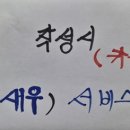 작성시
새우) 서비스